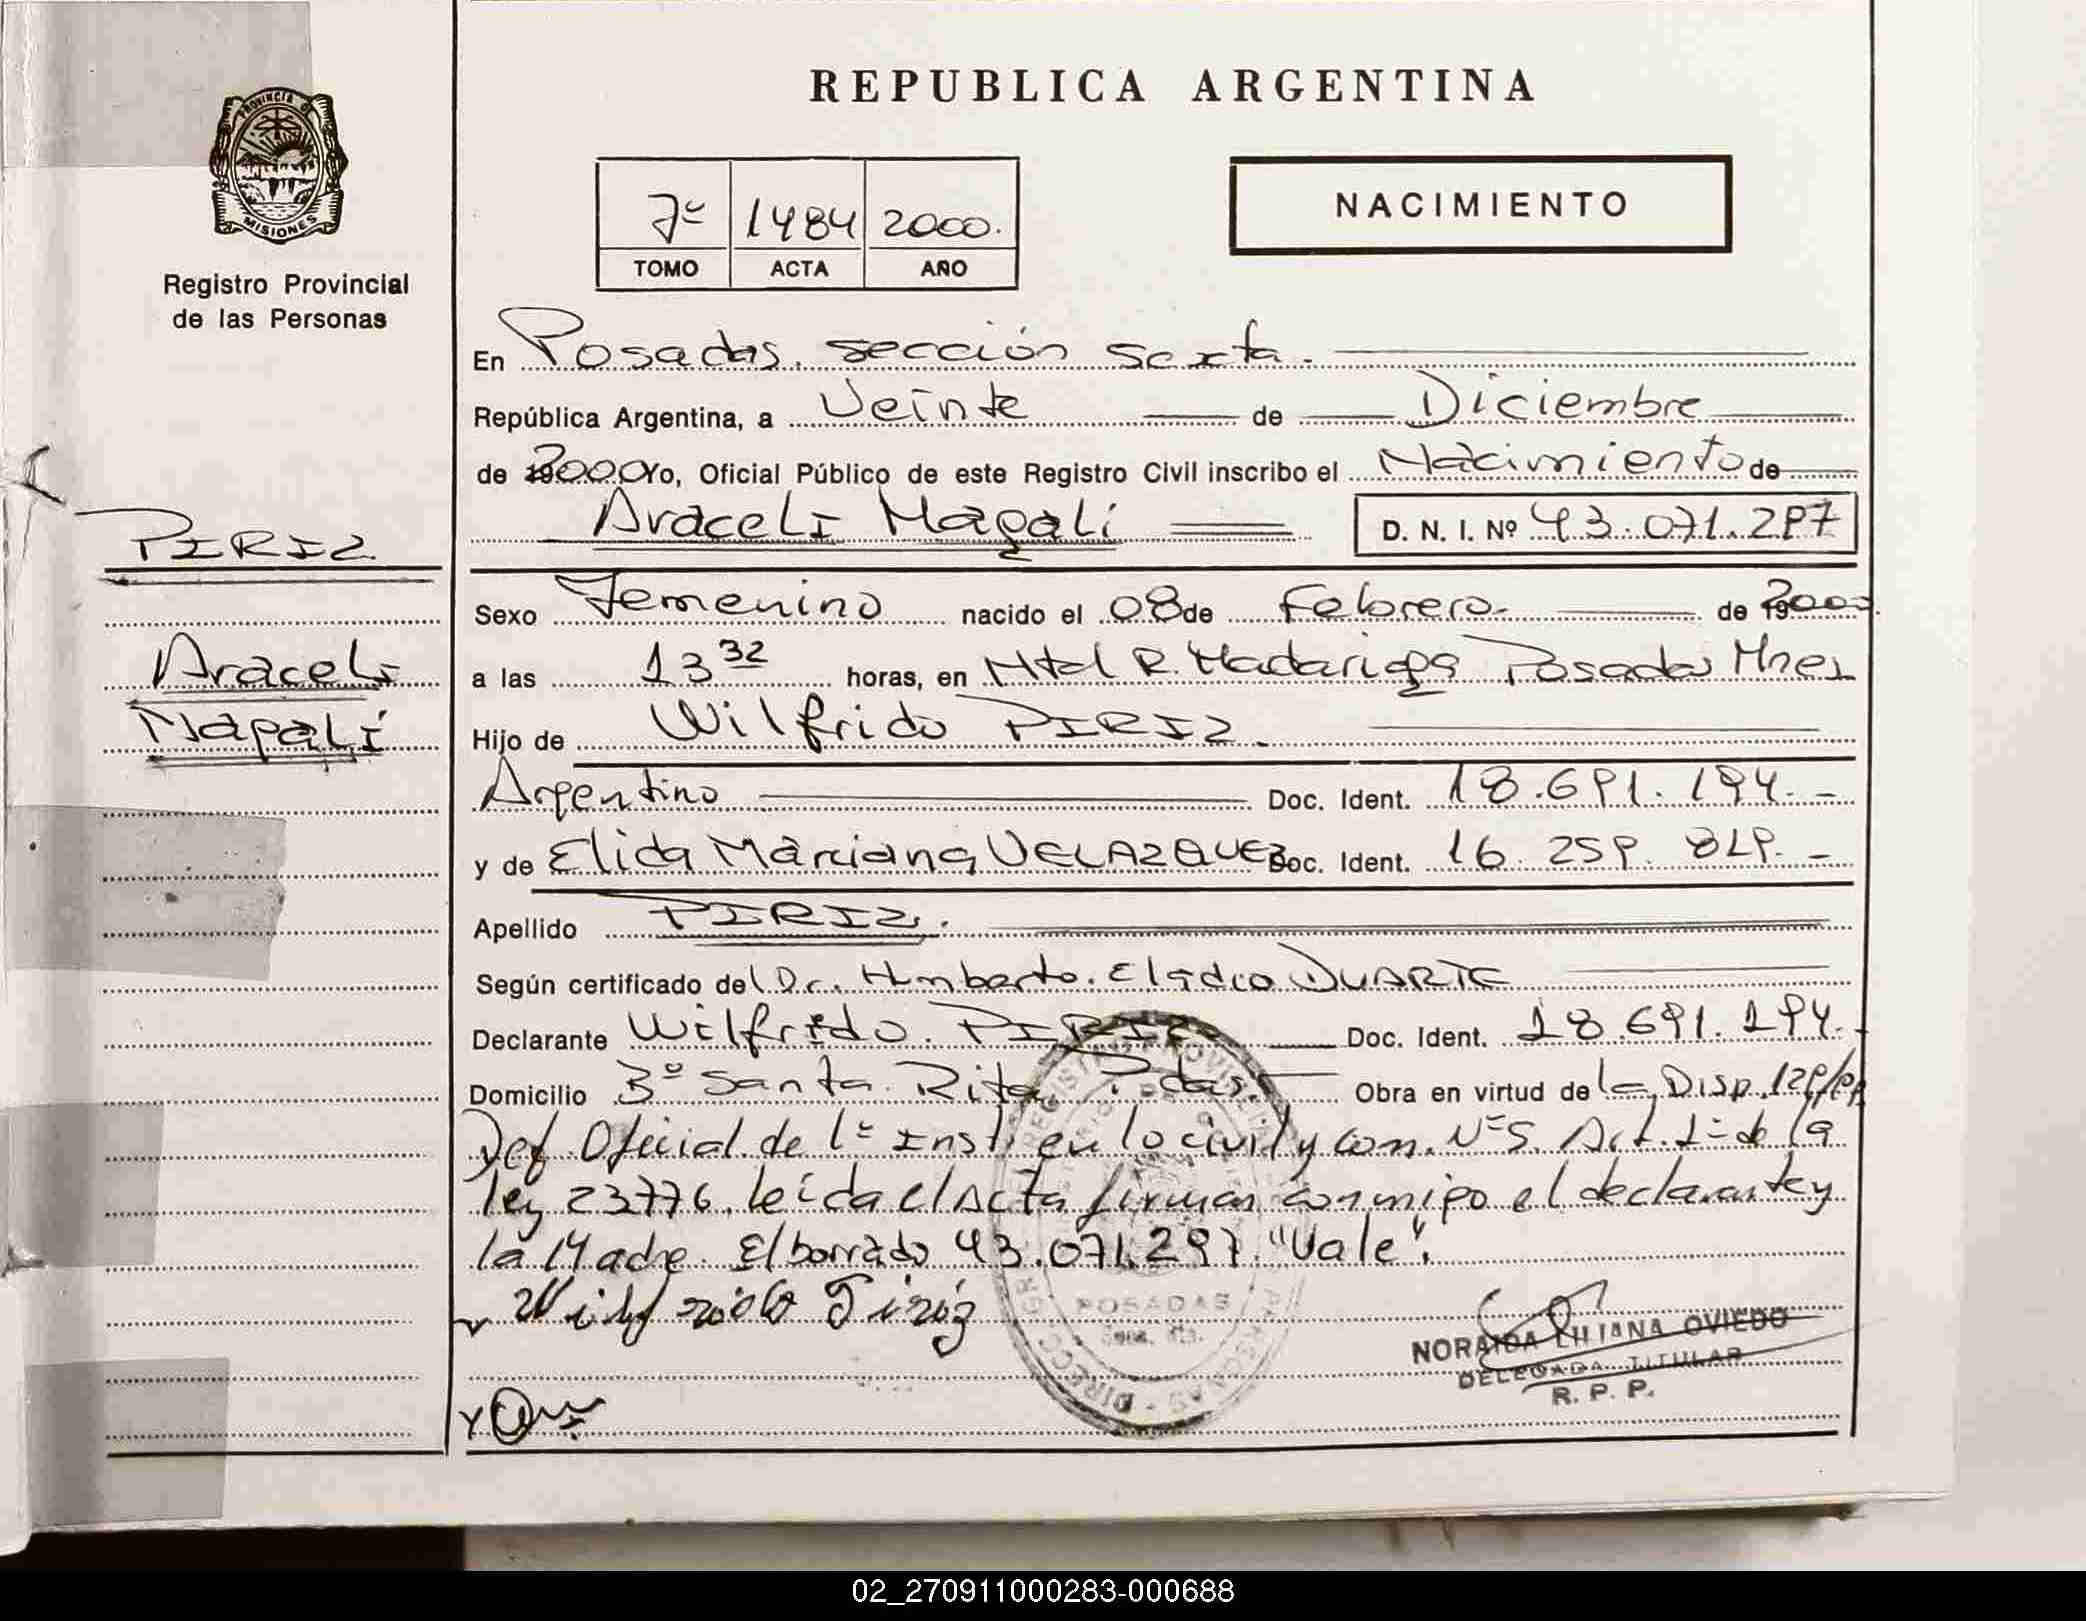 PROVINCIA DE
MISIONES
Registro Provincial
de las Personas
PIRIZ
Araceli
Magalí
REPUBLICA ARGENTINA
7º 1484 2000.
TOMO ACTA AÑO
NACIMIENTO
En Posadas, sección sexta.
República Argentina, a Veinte de Diciembre
de 2000 Yo, Oficial Público de este Registro Civil inscribo el Nacimiento de
Araceli Magali D. N. I. Nº 43.071.297
Sexo Femenino nacido el 08 de Febrero de 2000.
a las 13 32 horas, en Htal R. Madariaga Posadas Mnes
Hijo de Wilfrido PIRIZ.
Argentino Doc. Ident. 18.691.194.-
y de Elida Marciana VELAZQUEZ Doc. Ident. 16.259.829.-
Apellido PIRIZ.
Según certificado del Dr. Humberto Eladio DUARTE
Declarante Wilfrido PIRIZ Doc. Ident. 18.691.194.-
Domicilio Bº Santa Rita Pdas. Obra en virtud de la Disp. 129/99
Def. Oficial de 1º Inst. en lo civil y com. Nº 5. Art. 1º de la
ley 23776. leída el Acta firman conmigo el declarante y
la Madre. El borrado 43.071.297 "Vale".
Wilfrido Piriz
POSADAS
NORAIDA LILIANA OVIEDO
DELEGADA TITULAR
R. P. P.
02_270911000283-000688